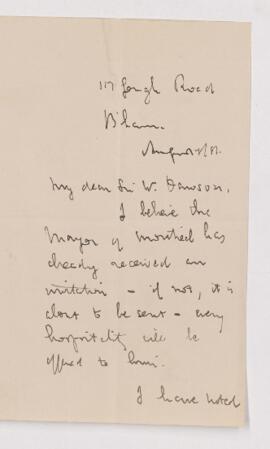 117 Gough Road
B'ham.
August
My dear Sir W. Dawson,
I believe the
Mayor of Montreal has
already received an
invitation - if not, it is
about to be sent - every
hospitality will be
offered to him.
I have noted